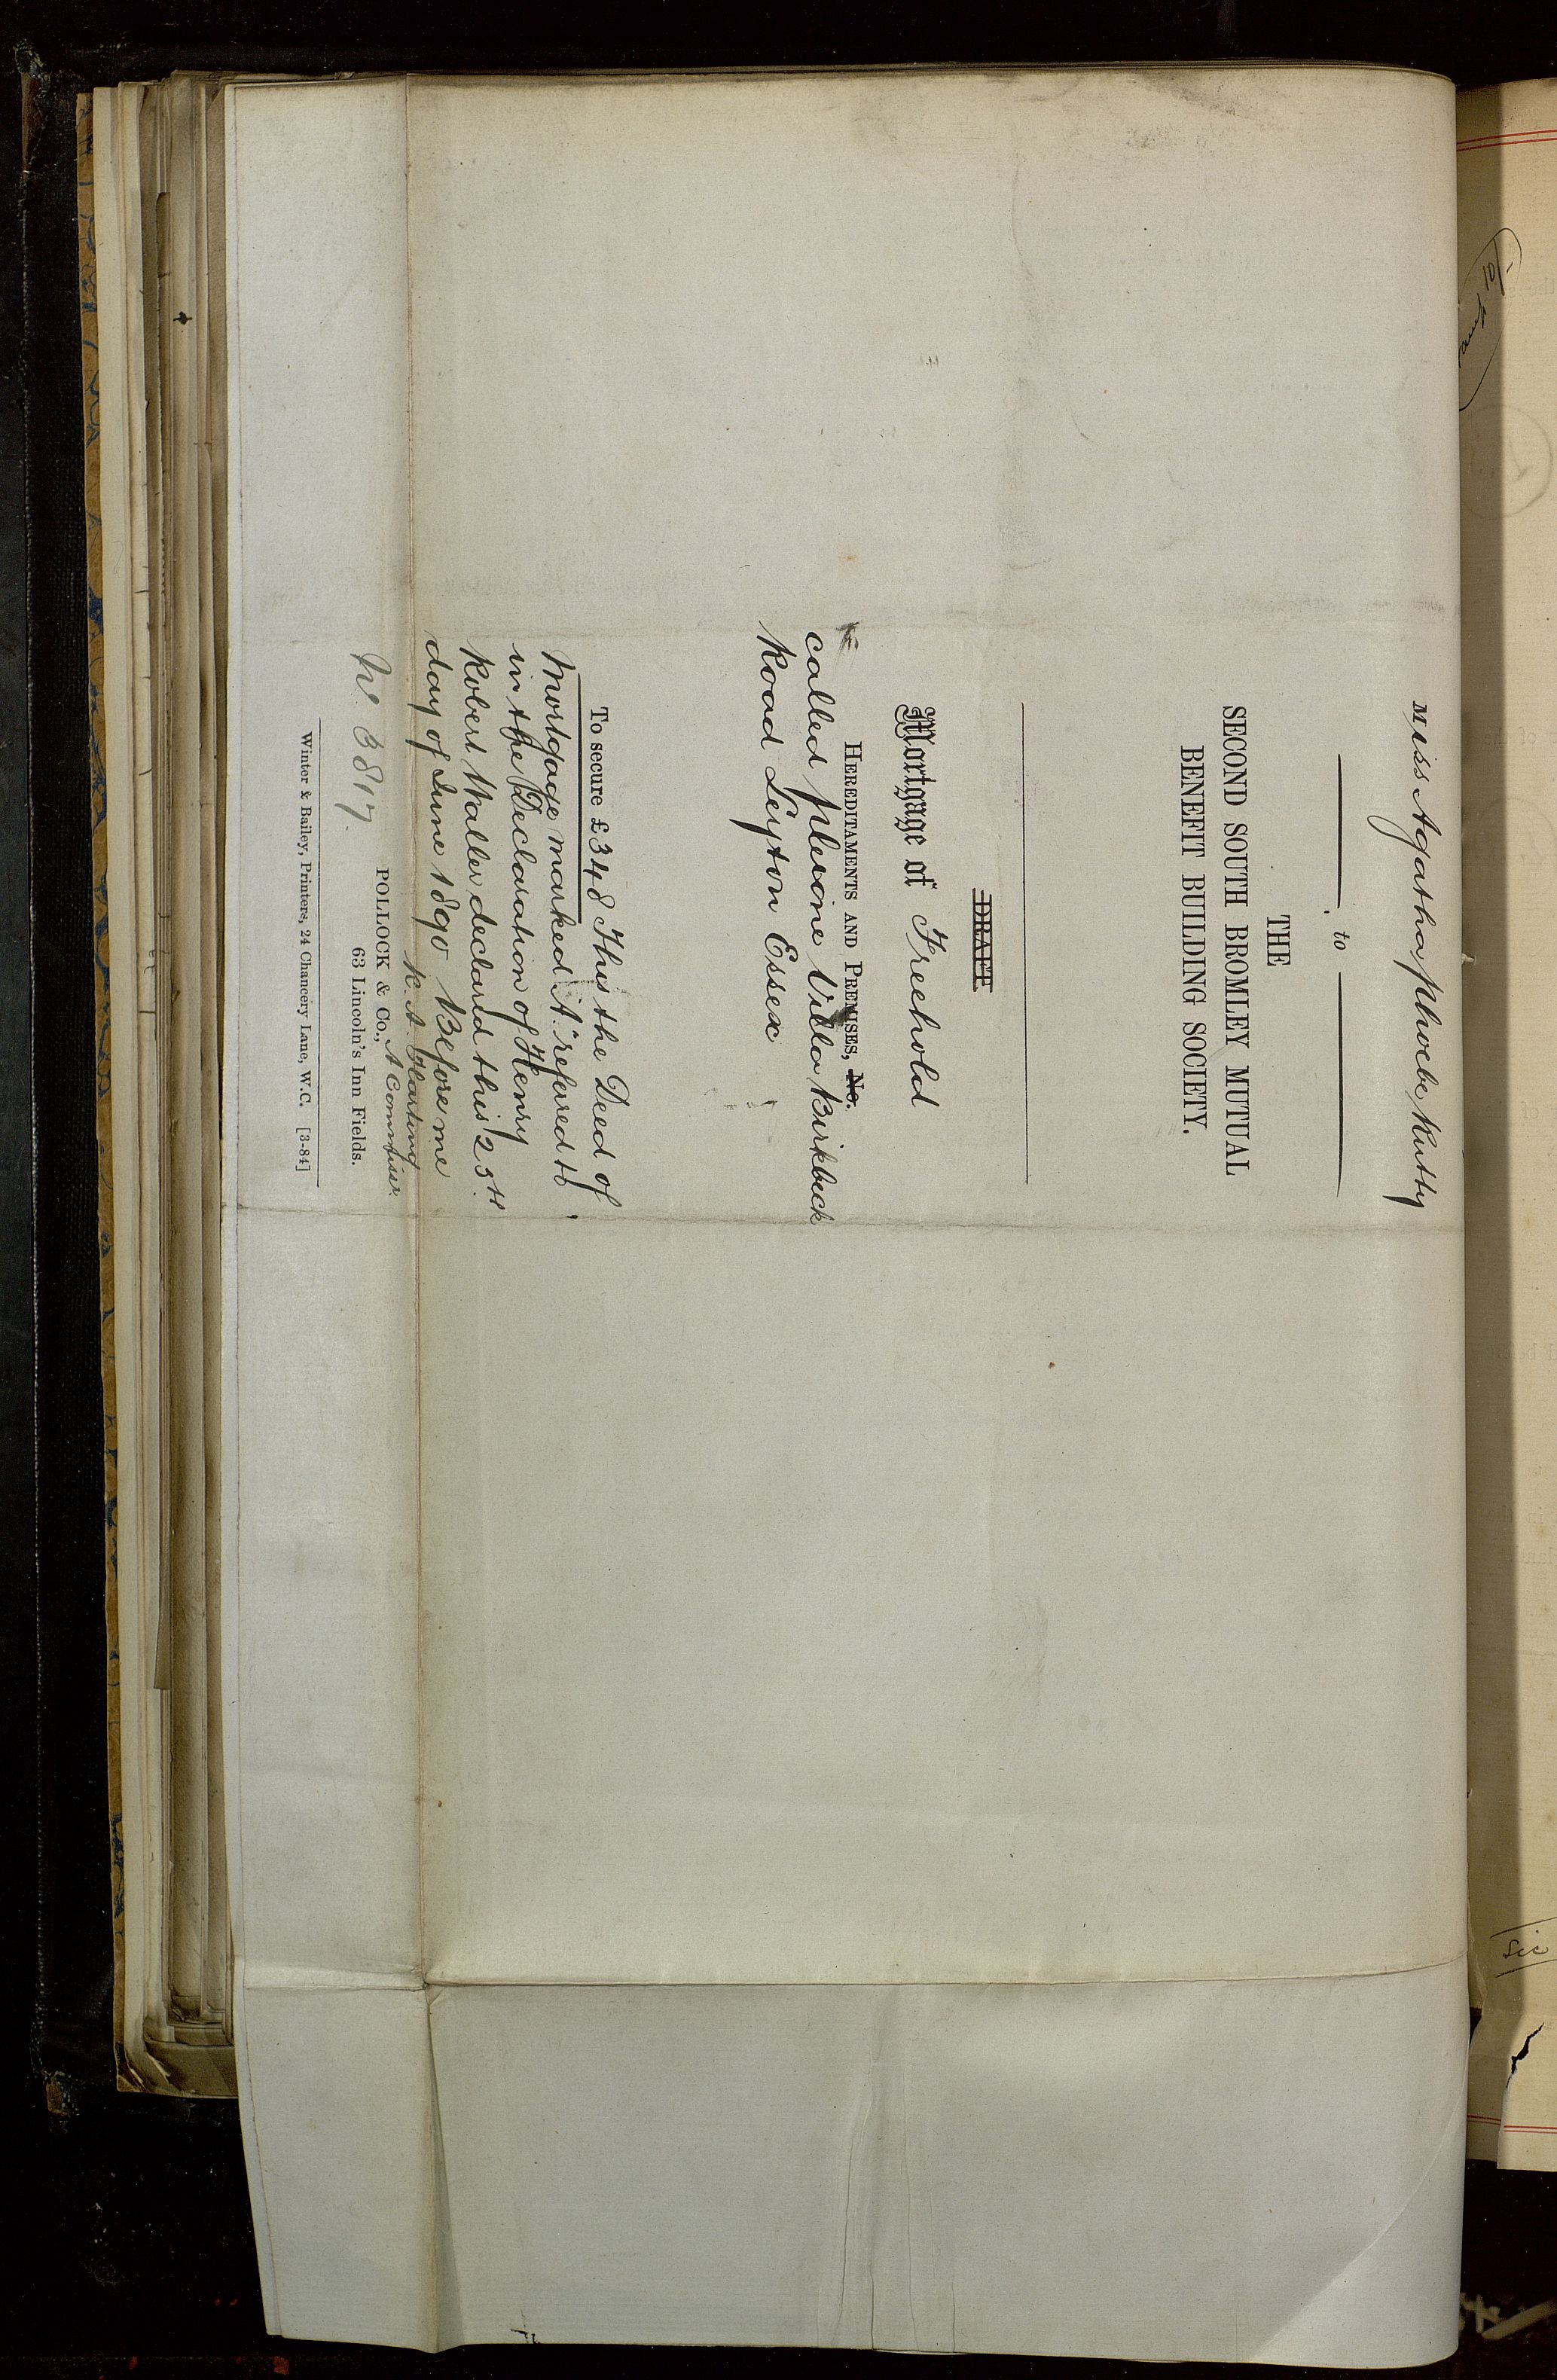 Miss Agatha Phoebe Rutty
to
THE
SECOND SOUTH BROMLEY MUTUAL
BENEFIT BUILDING SOCIETY.
DRAFT
Mortgage of Freehold
HEREDITAMENTS AND PREMISES, No.
called Pleione Villa Birkbeck
Road Leyton Essex
To secure £348 This the Deed of
Mortgage marked "A" referred to
in the Declaration of Henry
Robert Waller declared this 25th
day of June 1890 Before me
A Commiss.
No. 3817.
POLLOCK & Co.,
63 Lincoln's Inn Fields.
Winter & Bailey, Printers, 24 Chancery Lane, W.C. [3-84]
10/-
sic